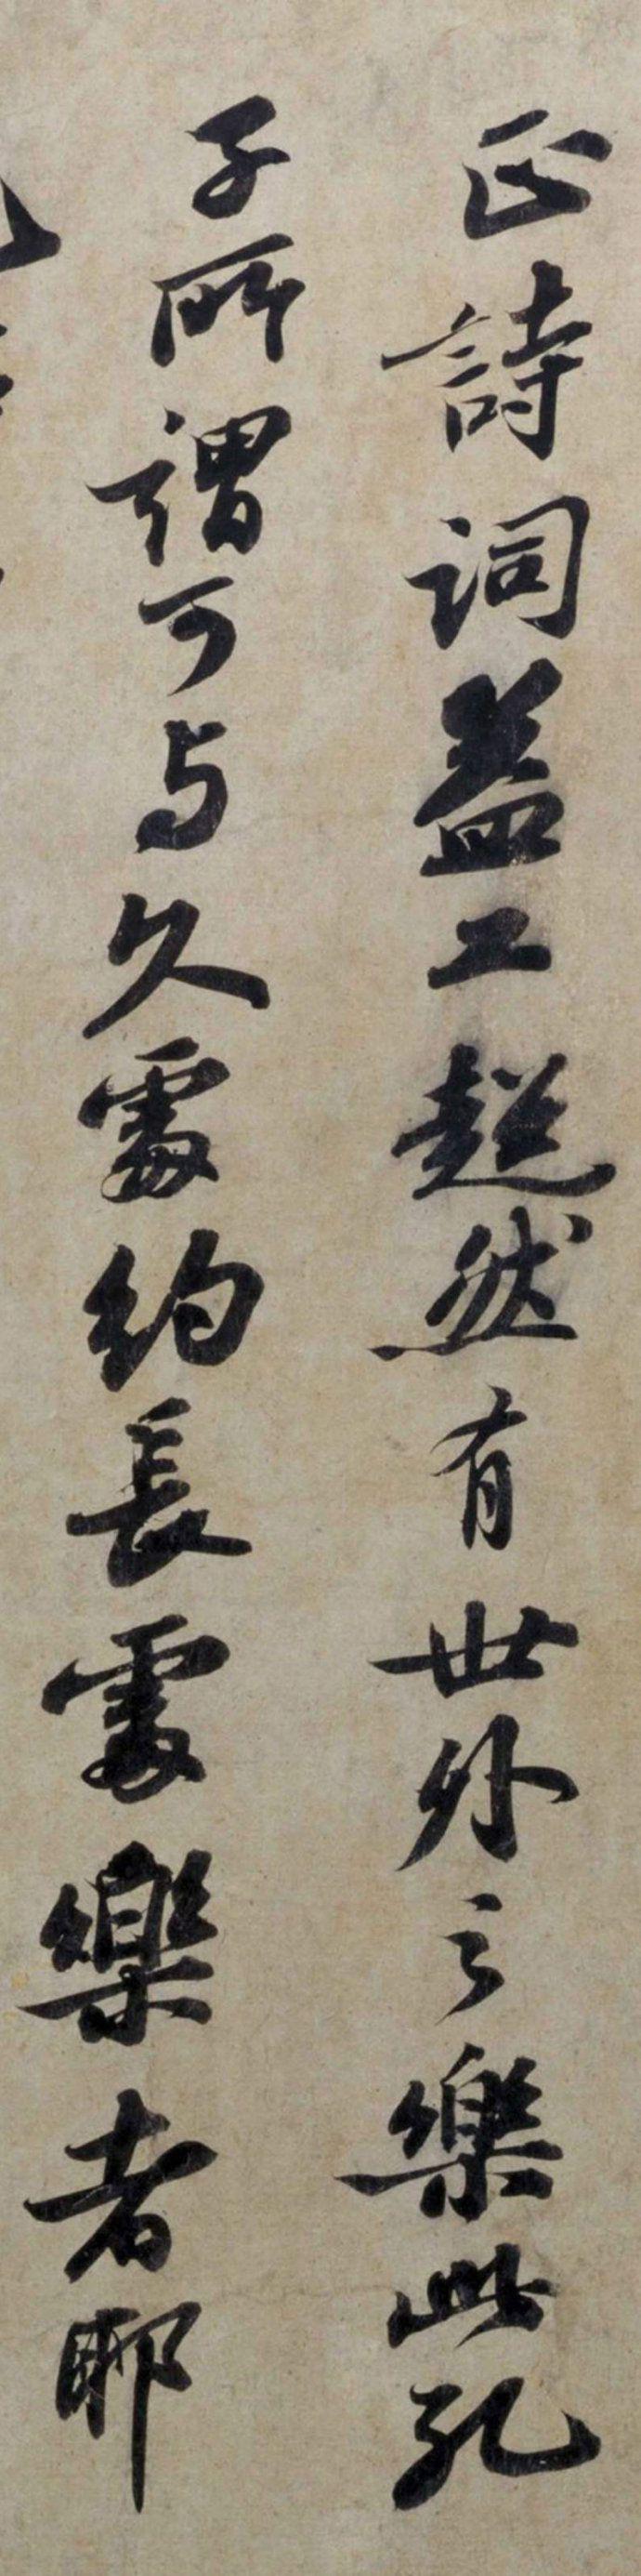 正詩詞益工超然有世外之樂此孔
子所謂可与久處約長處樂者耶